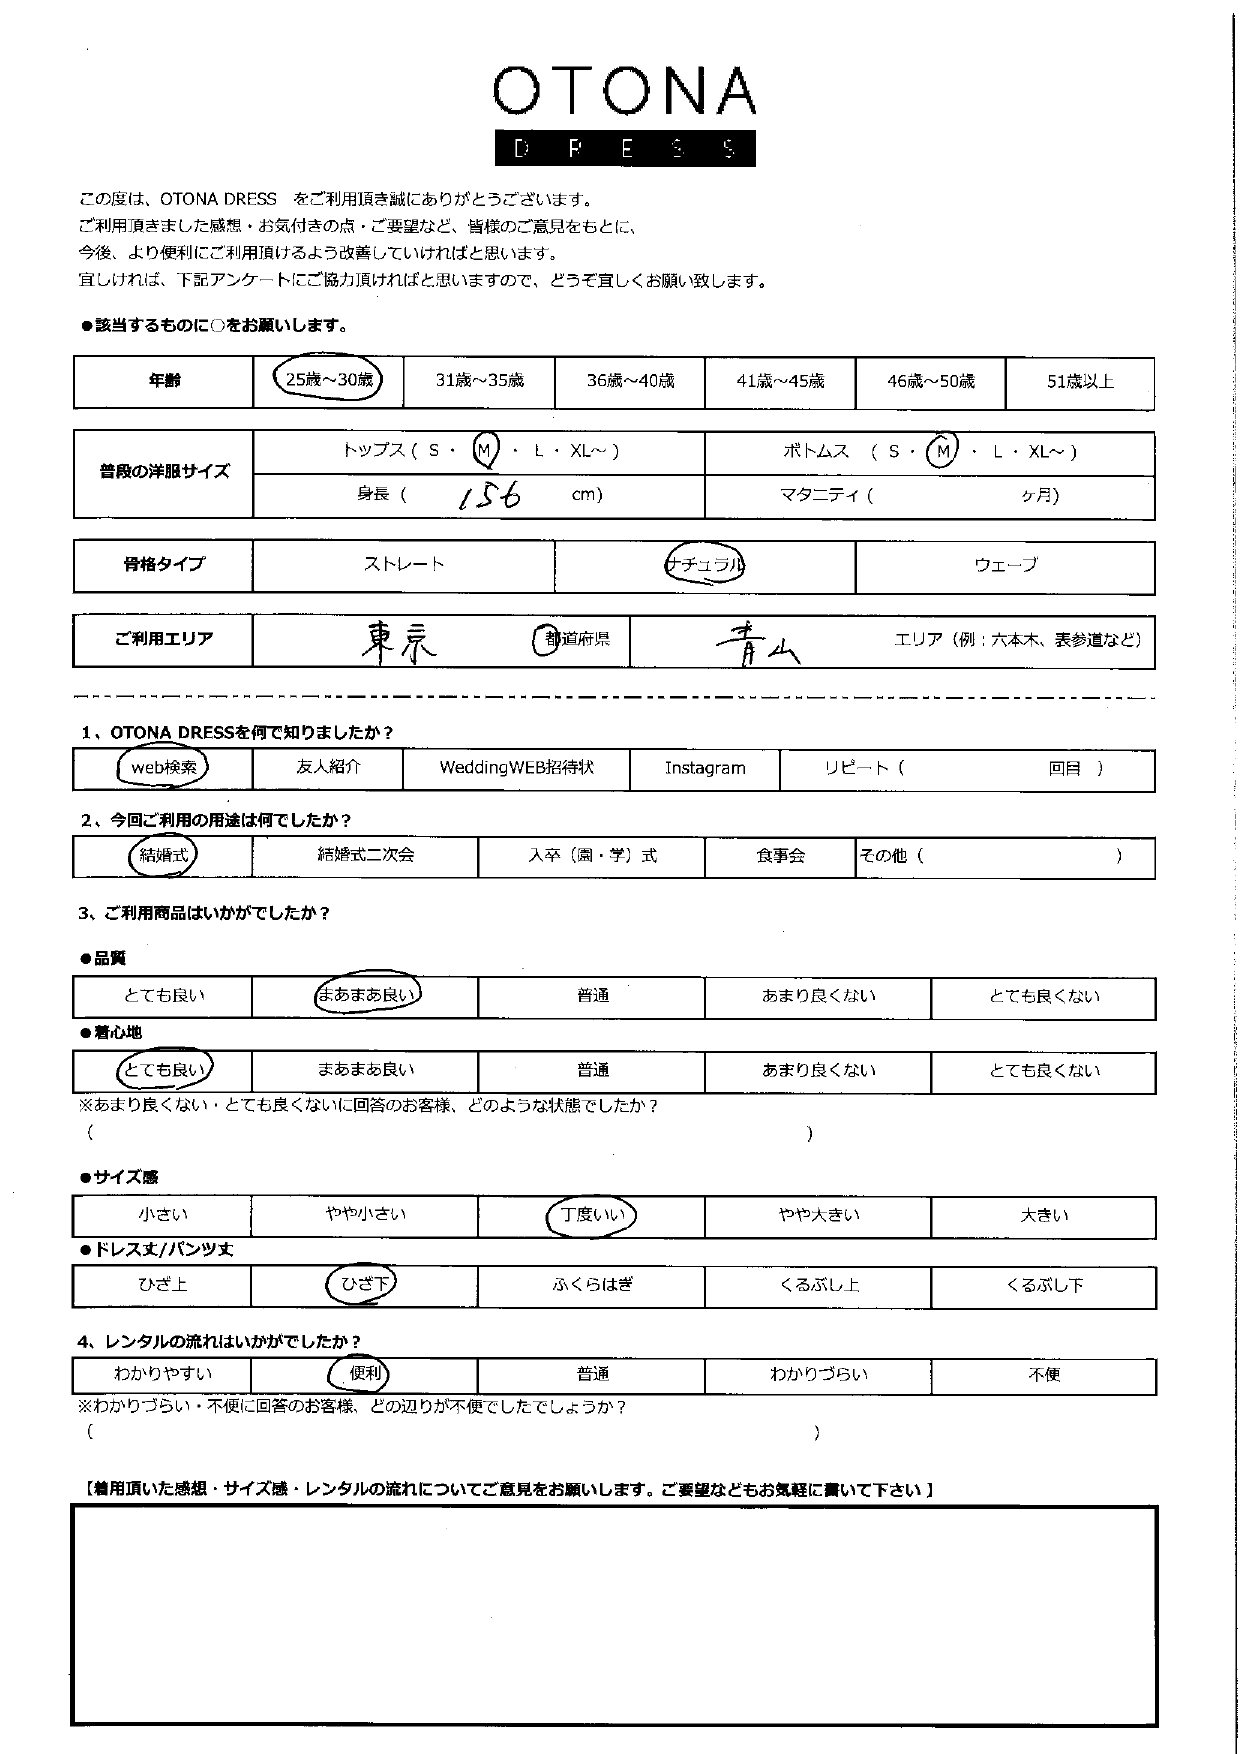 OTONA
DRESS
この度は、OTONA DRESS　をご利用頂き誠にありがとうございます。
ご利用頂きました感想・お気付きの点・ご要望など、皆様のご意見をもとに、
今後、より便利にご利用頂けるよう改善していければと思います。
宜しければ、下記アンケートにご協力頂ければと思いますので、どうぞ宜しくお願い致します。
●該当するものに○をお願いします。
年齢 25歳～30歳 31歳～35歳 36歳～40歳 41歳～45歳 46歳～50歳 51歳以上
普段の洋服サイズ トップス ( S ・ M ・ L ・ XL～ ) ボトムス ( S ・ M ・ L ・ XL～ )
身長 ( 156 cm) マタニティ ( ヶ月)
骨格タイプ ストレート ナチュラル ウェーブ
ご利用エリア 東京 都道府県 青山 エリア（例：六本木、表参道など）
1、OTONA DRESSを何で知りましたか？
web検索 友人紹介 WeddingWEB招待状 Instagram リピート ( 回目 )
2、今回ご利用の用途は何でしたか？
結婚式 結婚式二次会 入卒（園・学）式 食事会 その他 ( )
3、ご利用商品はいかがでしたか？
●品質
とても良い まあまあ良い 普通 あまり良くない とても良くない
●着心地
とても良い まあまあ良い 普通 あまり良くない とても良くない
※あまり良くない・とても良くないに回答のお客様、どのような状態でしたか？
( )
●サイズ感
小さい やや小さい 丁度いい やや大きい 大きい
●ドレス丈/パンツ丈
ひざ上 ひざ下 ふくらはぎ くるぶし上 くるぶし下
4、レンタルの流れはいかがでしたか？
わかりやすい 便利 普通 わかりづらい 不便
※わかりづらい・不便に回答のお客様、どの辺りが不便でしたでしょうか？
( )
【着用頂いた感想・サイズ感・レンタルの流れについてご意見をお願いします。ご要望などもお気軽に書いて下さい 】